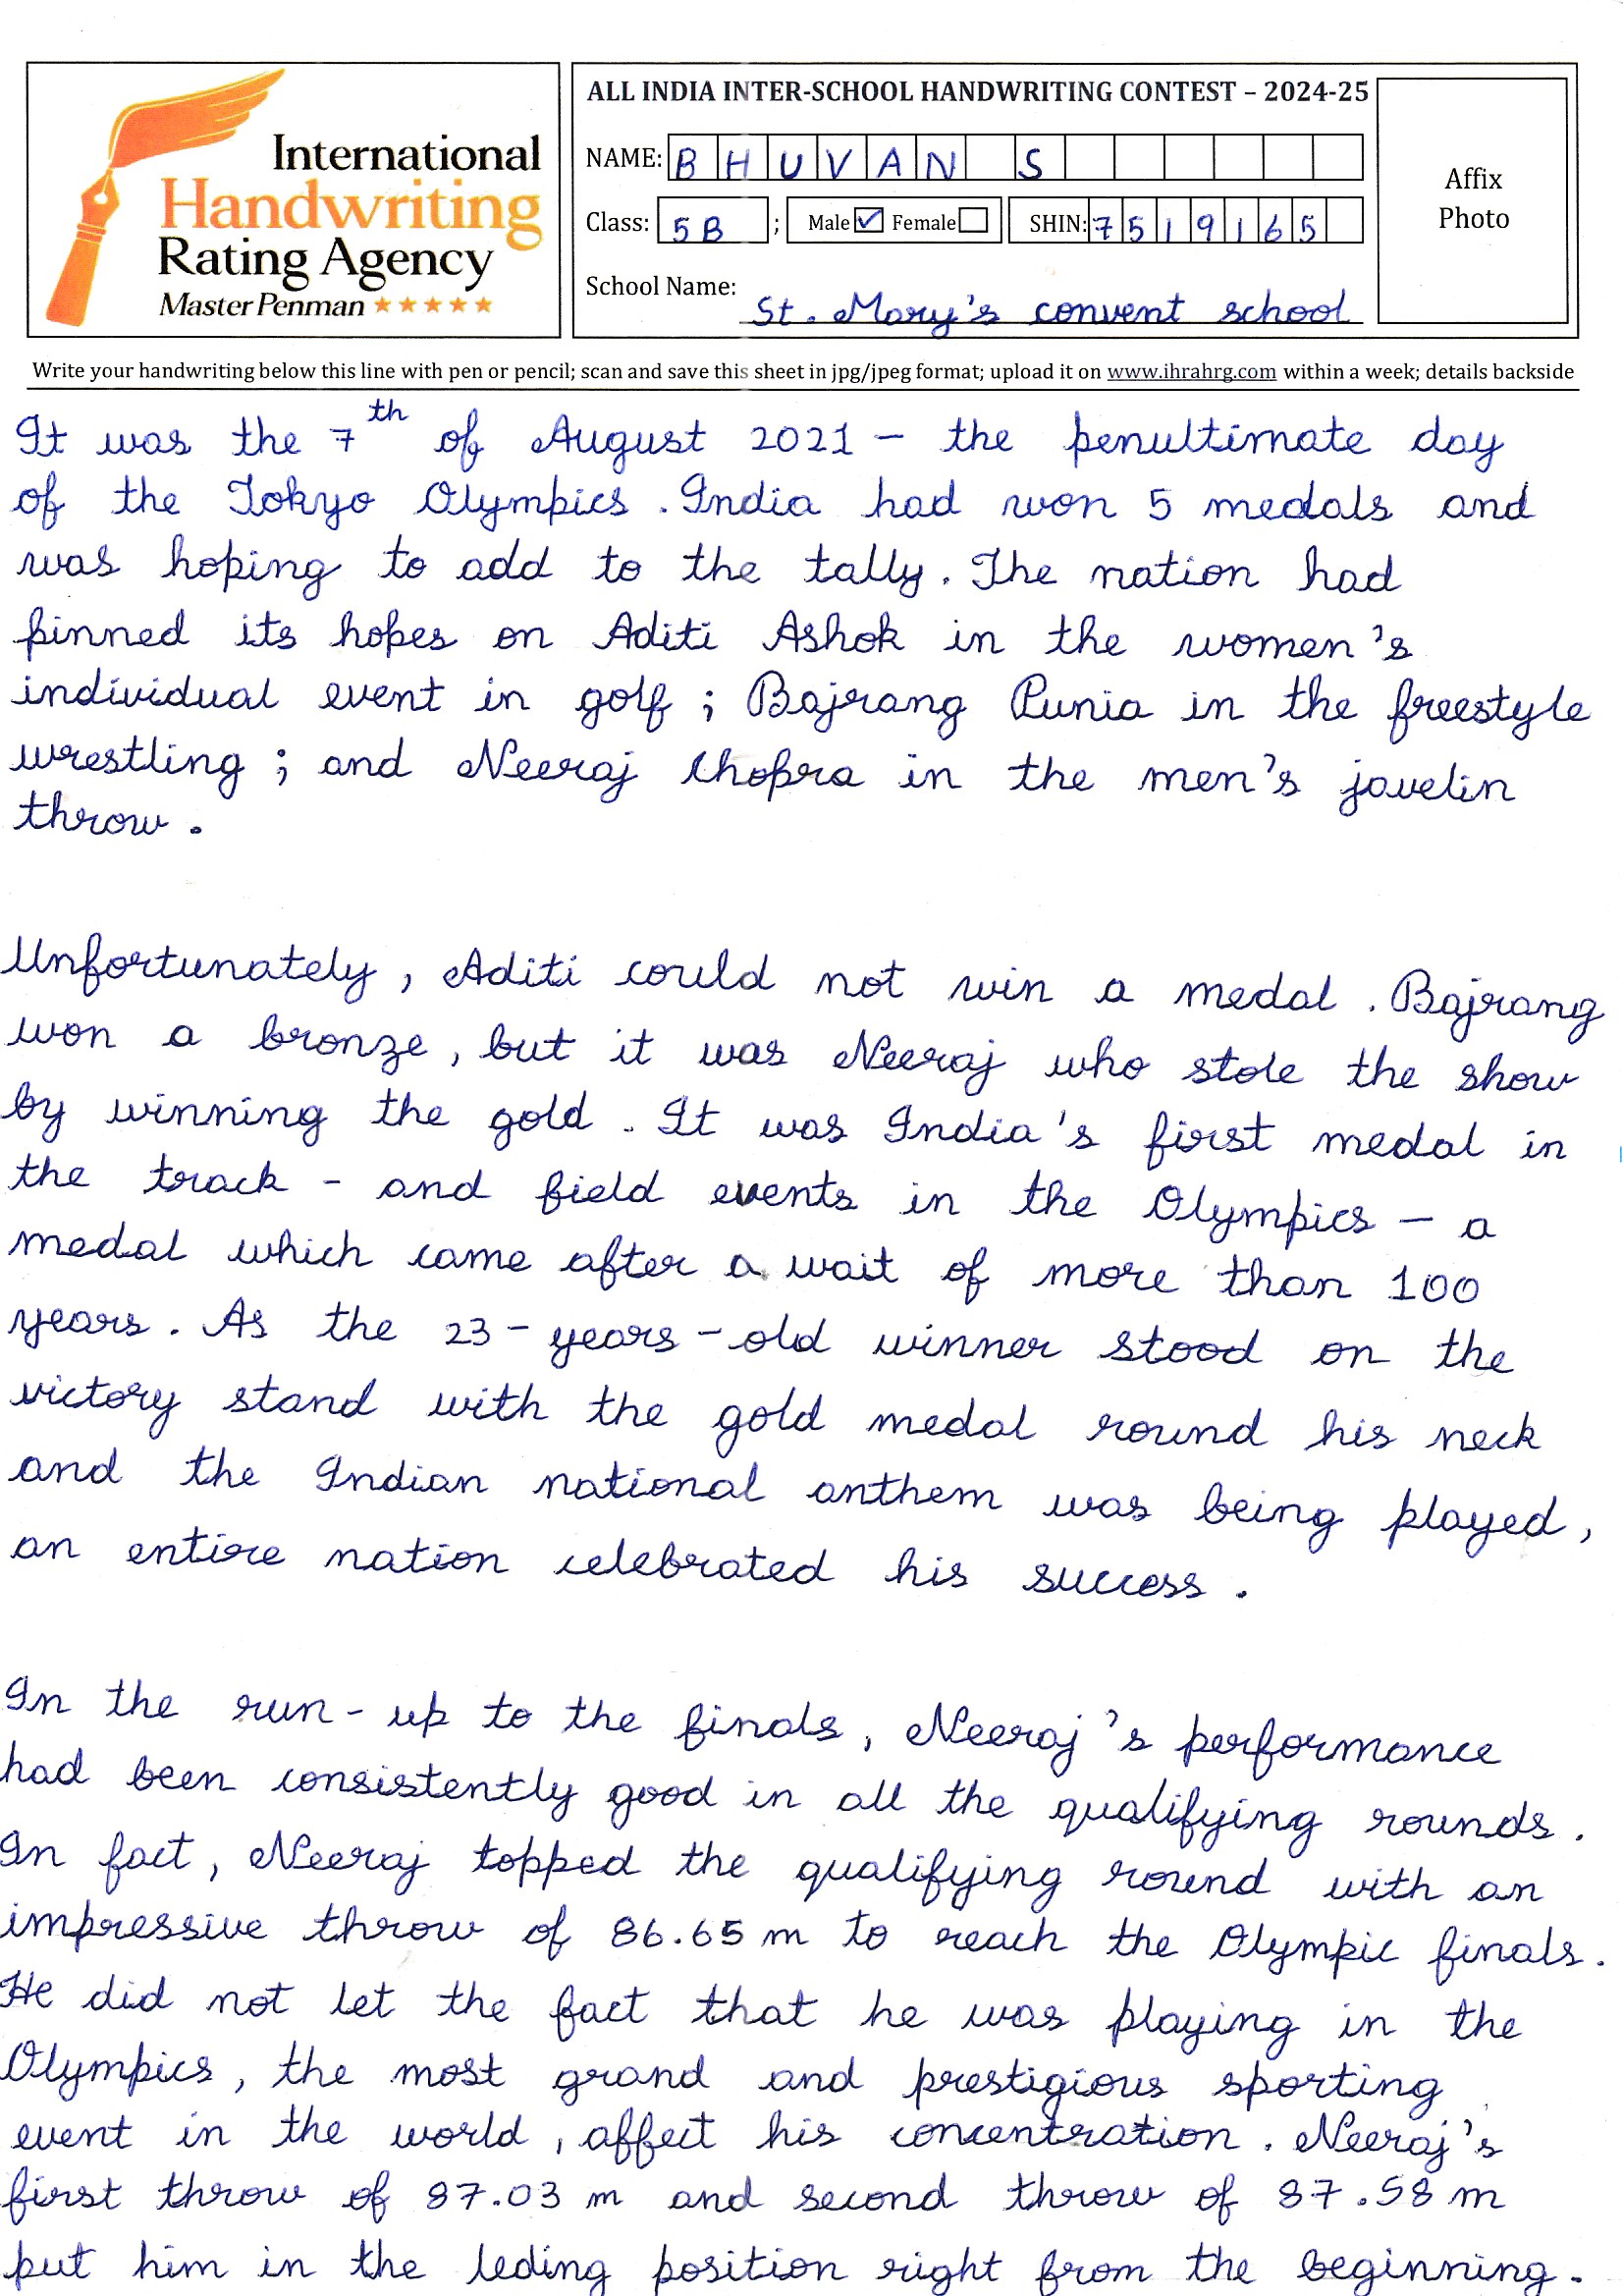 International
Handwriting
Rating Agency
Master Penman ★★★★★
ALL INDIA INTER-SCHOOL HANDWRITING CONTEST – 2024-25
NAME: BHUVAN S
Class: 5B ; Male ☑ Female ☐ SHIN: 7519165
School Name: St. Mary's convent school
Affix
Photo
Write your handwriting below this line with pen or pencil; scan and save this sheet in jpg/jpeg format; upload it on www.ihrahrg.com within a week; details backside
It was the 7th of August 2021 – the penultimate day
of the Tokyo Olympics. India had won 5 medals and
was hoping to add to the tally. The nation had
pinned its hopes on Aditi Ashok in the women's
individual event in golf ; Bajrang Punia in the freestyle
wrestling ; and Neeraj Chopra in the men's javelin
throw.
Unfortunately, Aditi could not win a medal. Bajrang
won a bronze, but it was Neeraj who stole the show
by winning the gold. It was India's first medal in
the track - and field events in the Olympics – a
medal which came after a wait of more than 100
years. As the 23-years-old winner stood on the
victory stand with the gold medal round his neck
and the Indian national anthem was being played,
an entire nation celebrated his success.
In the run-up to the finals, Neeraj's performance
had been consistently good in all the qualifying rounds.
In fact, Neeraj topped the qualifying round with an
impressive throw of 86.65 m to reach the Olympic finals.
He did not let the fact that he was playing in the
Olympics, the most grand and prestigious sporting
event in the world, affect his concentration. Neeraj's
first throw of 87.03 m and second throw of 87.58 m
put him in the leding position right from the beginning.